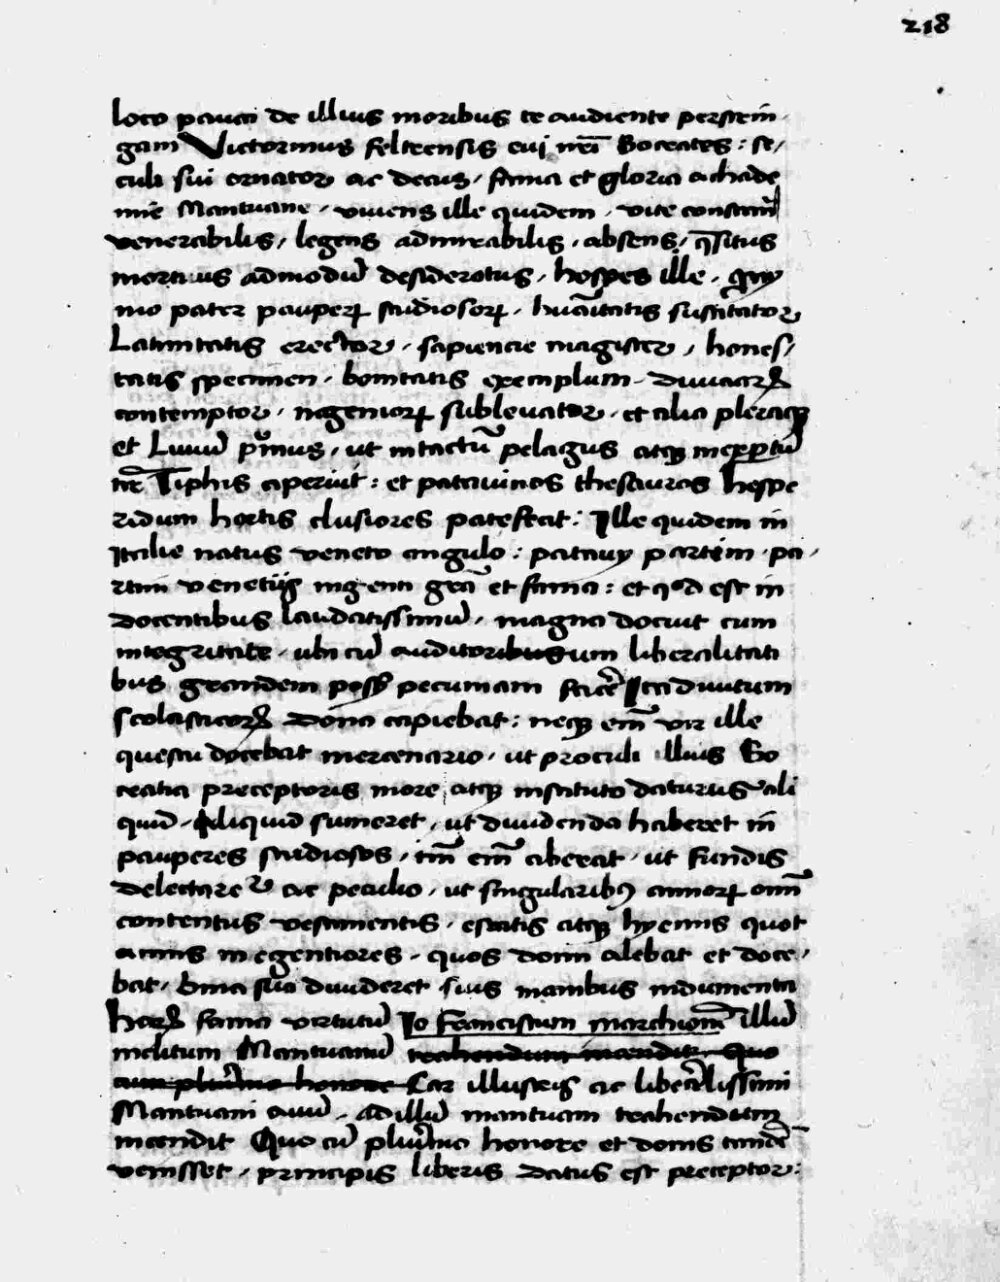 218
loco pauca de illius moribus te audiente perstrin
gam Victorinus feltrensis eui nr̄i Socrates: se/
culi sui ornator ac decus, fama et gloria achade
mie Mantuane, viuens ille quidem, vite constan̄
venerabilis, legens admirabilis, absens, q̄situs
mortuus admodū desideratus, hospes ille,
mo pater pauperꝝ studiosorꝝ, huāitatis suscitator
Latinitatis erector, sapiencie magister, hones/
tatis specimen, bonitatis exemplum, diuiciarꝝ
contemptor, ingeniorꝝ subleuator, et alia pleraqꝫ
et Liuiū pͥmus, ut intactū pelagus atqꝫ inexꝑtū
Tiphis aperiuit: et patauinos thesauros hespe
ridum hortis clusiores patefecit: Ille quidem in
Italie natus veneto angulo: patauij partim, pa,
rtim venetiis ingenii grā et fama: et qd est in
docentibus laudatissimū, magna docuit cum
integritate, ubi cū auditoribus um liberalitati
bus grandem pecuniam facē Ita diuitum
scolasticorꝝ dona capiebat: neqꝫ em̄ vir ille
questu docebat mercenario, ut proculi illius So
cratici preceptoris more, atqꝫ instituto daturus ali
quid, Aliquid sumeret, ut diuidenda haberet in
pauperes studiosos, tm̄ em̄ aberat, ut fundis
delectaret᷑ ac peculio, ut singularibꝰ annorꝝ om̄
contentus vestimentis, estatis atqꝫ hyemis quot
annis inegentiores, quos domi alebat et doce,
bat, bina sua diuideret suis manibus indumenta
Harꝝ fama virtutū Io Franciscum marchionē illū
inclitum Mantuanū trahendum incendit Quo
cum plurīmo honore Car illustris ac liberalissimi
Mantuani auū, Ad illū mantuam trahendum
incendit Quo cū plurīmo honore et donis tandē
venisset, principis liberis datus est preceptor: